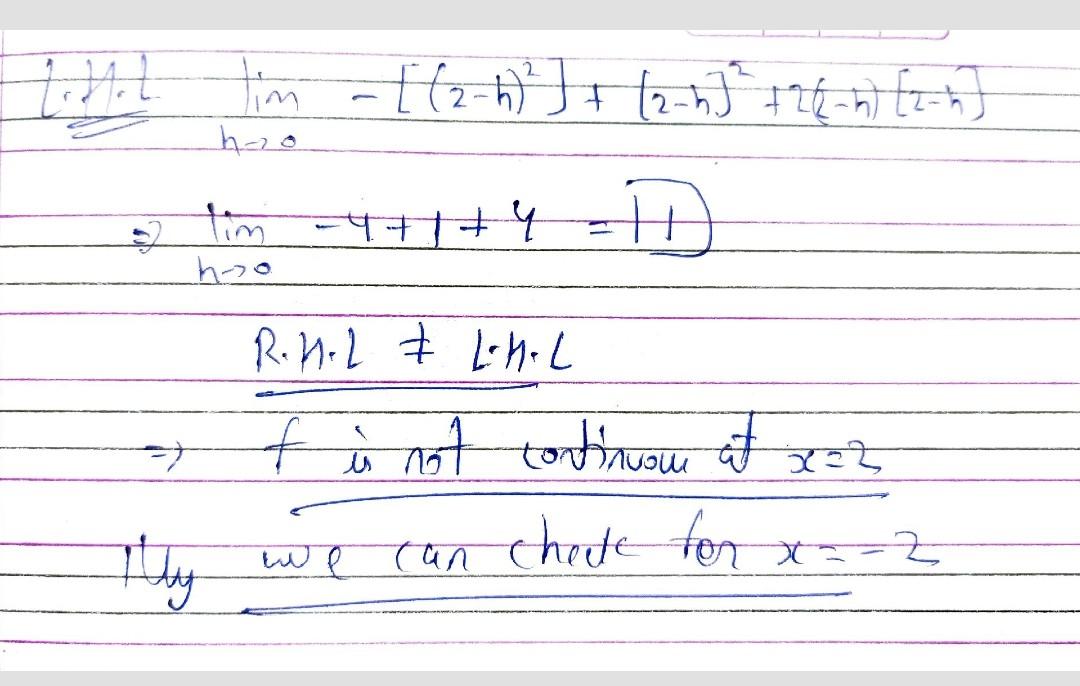 L.H.L lim - [(2-h)²] + [2-h]² + 2(2-h) [2-h]
h->0
=> lim -4+1+4 = 1
h->0
R.H.L ≠ L.H.L
=> f is not continuou at x=2
lly we can check for x=-2